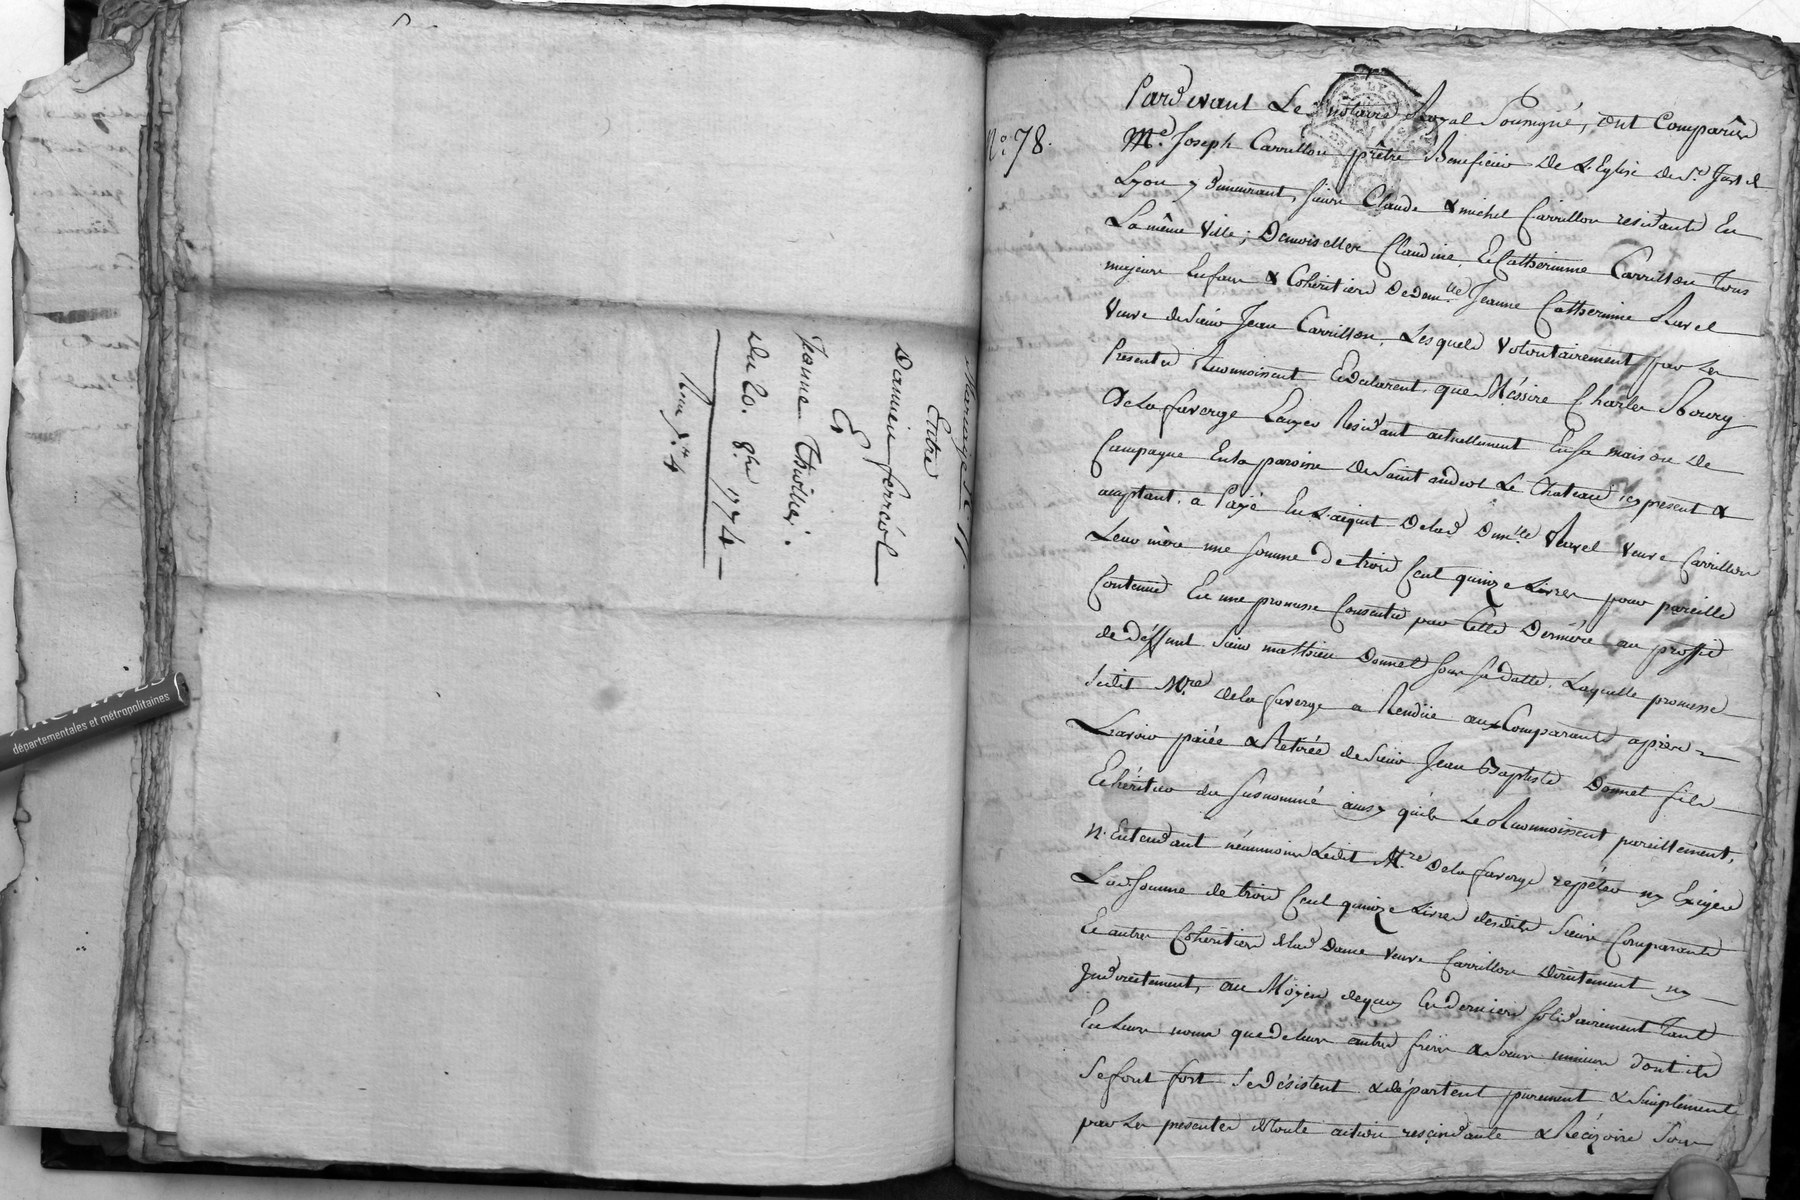 Mariage
Entre
Damien ferréol
Et
Jeanne Thollier.
Du 20. 8bre 1774
N.o 78.
Pardevant Le notaire Royal Soussigné, ont Comparûs
Me. Joseph Carrillon prêtre Beneficier de L'Eglise de St. Just de
Lyon y demeurant, sieurs Claude & michel Carrillon residants En
La même Ville; Demoiselles Claudine, Et Catherinne Carrillon tous
majeurs Enfans & Cohéritiers De Demlle Jeanne Catherinne Ravel
Veuve de Sieur Jean Carrillon, Lesquels Volontairement par Les
Presentes Reconnoissent Et declarent, que Méssire Charles
De La faverge Residant actuellement En sa maison de
Campagne En la paroisse De Saint andeol Le Chateau icy present &
acceptant. a Payé En L'acquit De lad. Demlle Ravel Veuve Carrillon
Leur mère une somme de trois Cent quinze Livres pour pareille
Contenüe En une promesse Consentie par Cette Derniére au proffit
de déffunt Sieur mathieu Donnet sous sa datte. Laquelle promesse
ledit Mre. de la faverge a Rendüe aux Comparants après
L'avoir paiée & Retirée de Sieur Jean Baptiste Donnet fils
Et héritier du susnommé ainsy qu'ils Le Reconnoissent pareillement,
N'Entendant néanmoins Ledit Mre. De la faverge repéter ny Exiger
Lad. Somme de trois Cent quinze Livres desdits Sieurs Comparants
Et autres Cohéritiers de lad. Dame Veuve Carrillon directement ny
Indirectement, au Moÿen dequoy Ces derniers solidairement Tant
En Leurs noms que de Leurs autres freres & soeurs mineurs dont ils
Se font fort Se désistent & départent purement & Simplement
par Les presentes de toute action rescindante & Rescizoire sous